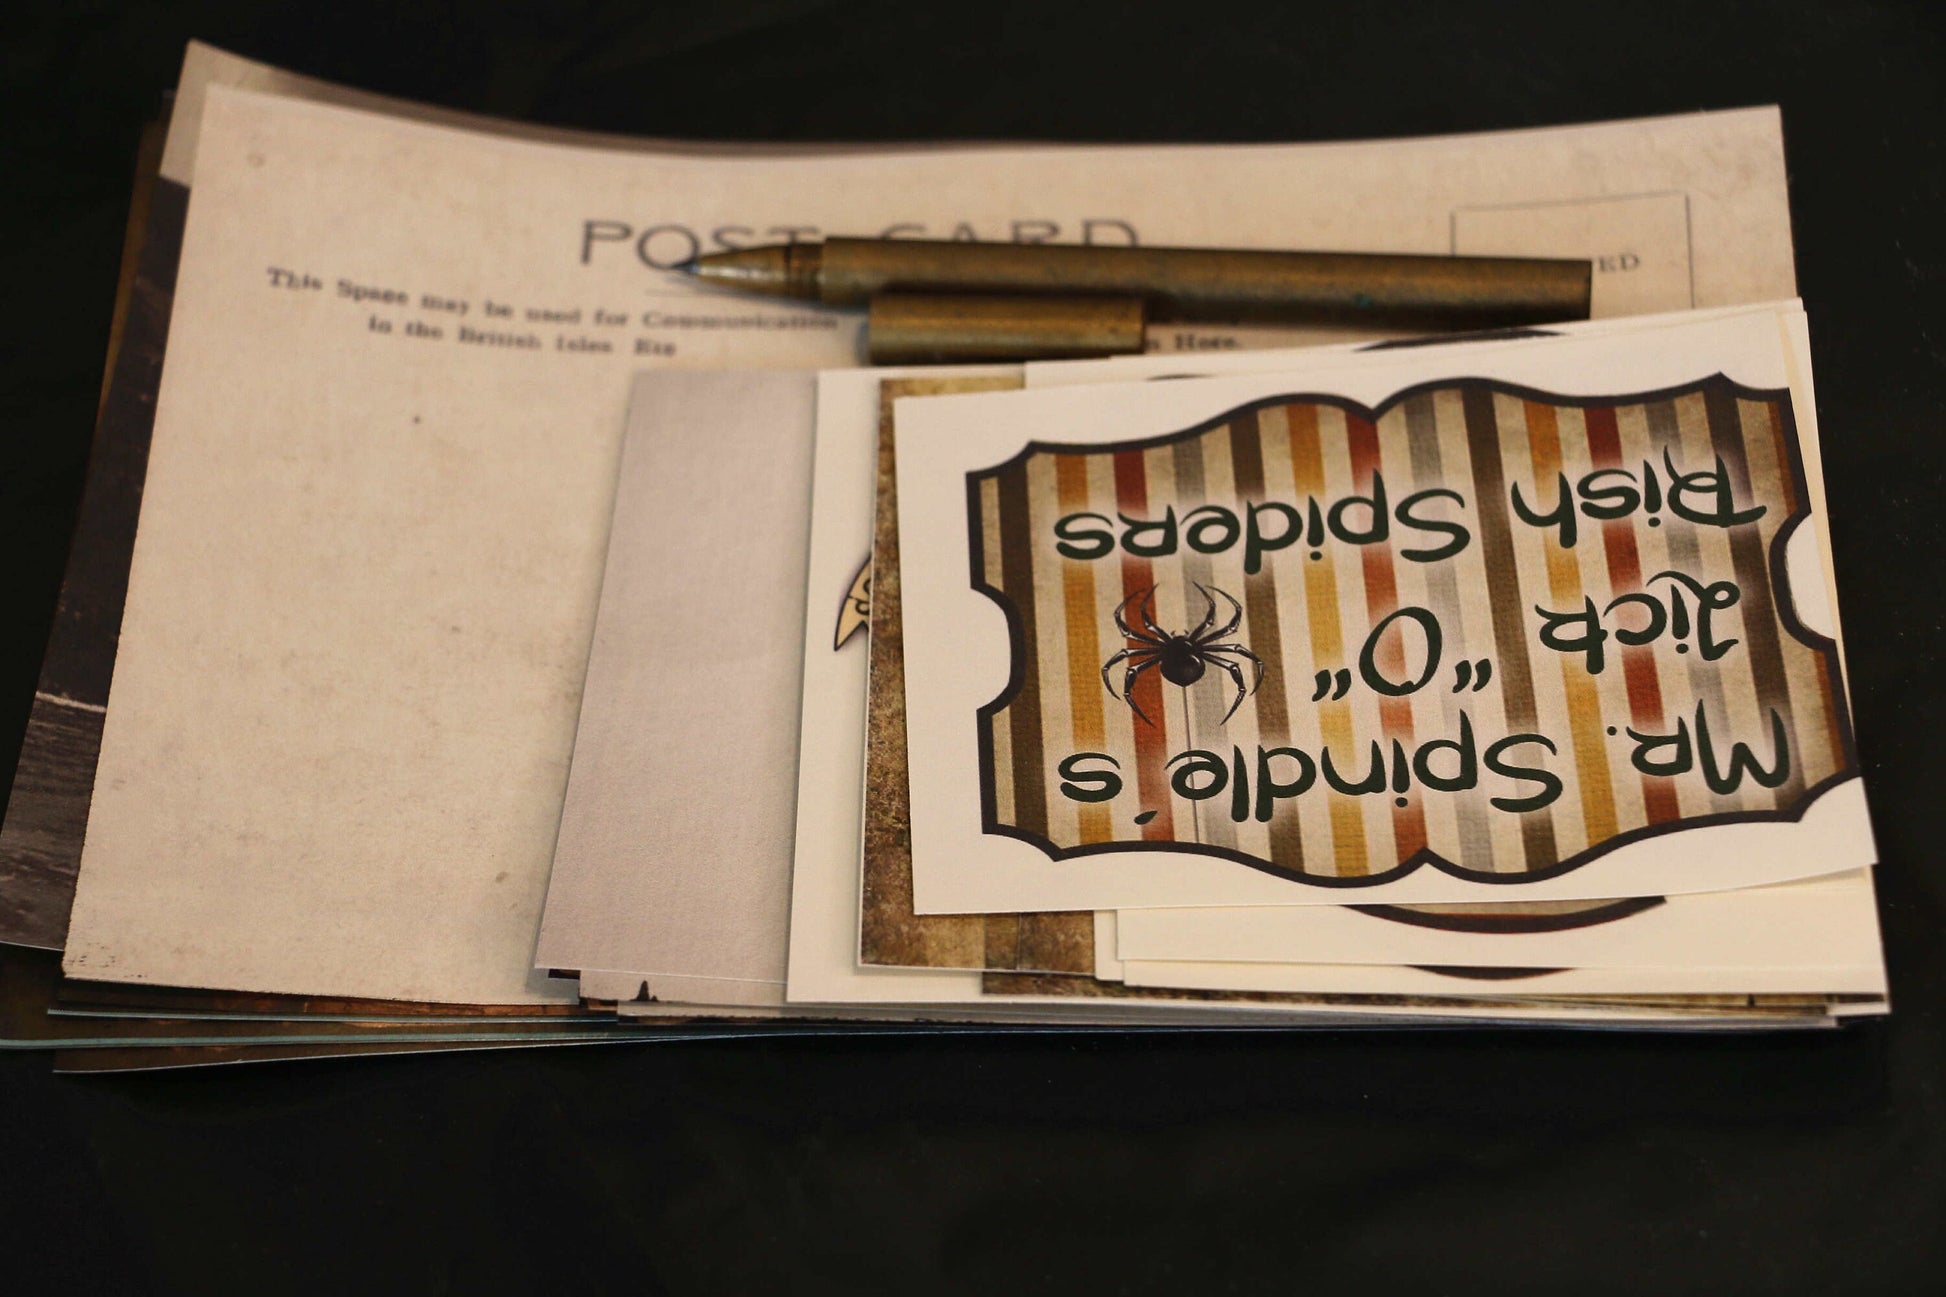 POST CARD
This Space may be used for Communication
in the British Isles Etc
n Here.
ED
Mr. Spindle's
Lick "O"
Rish Spiders